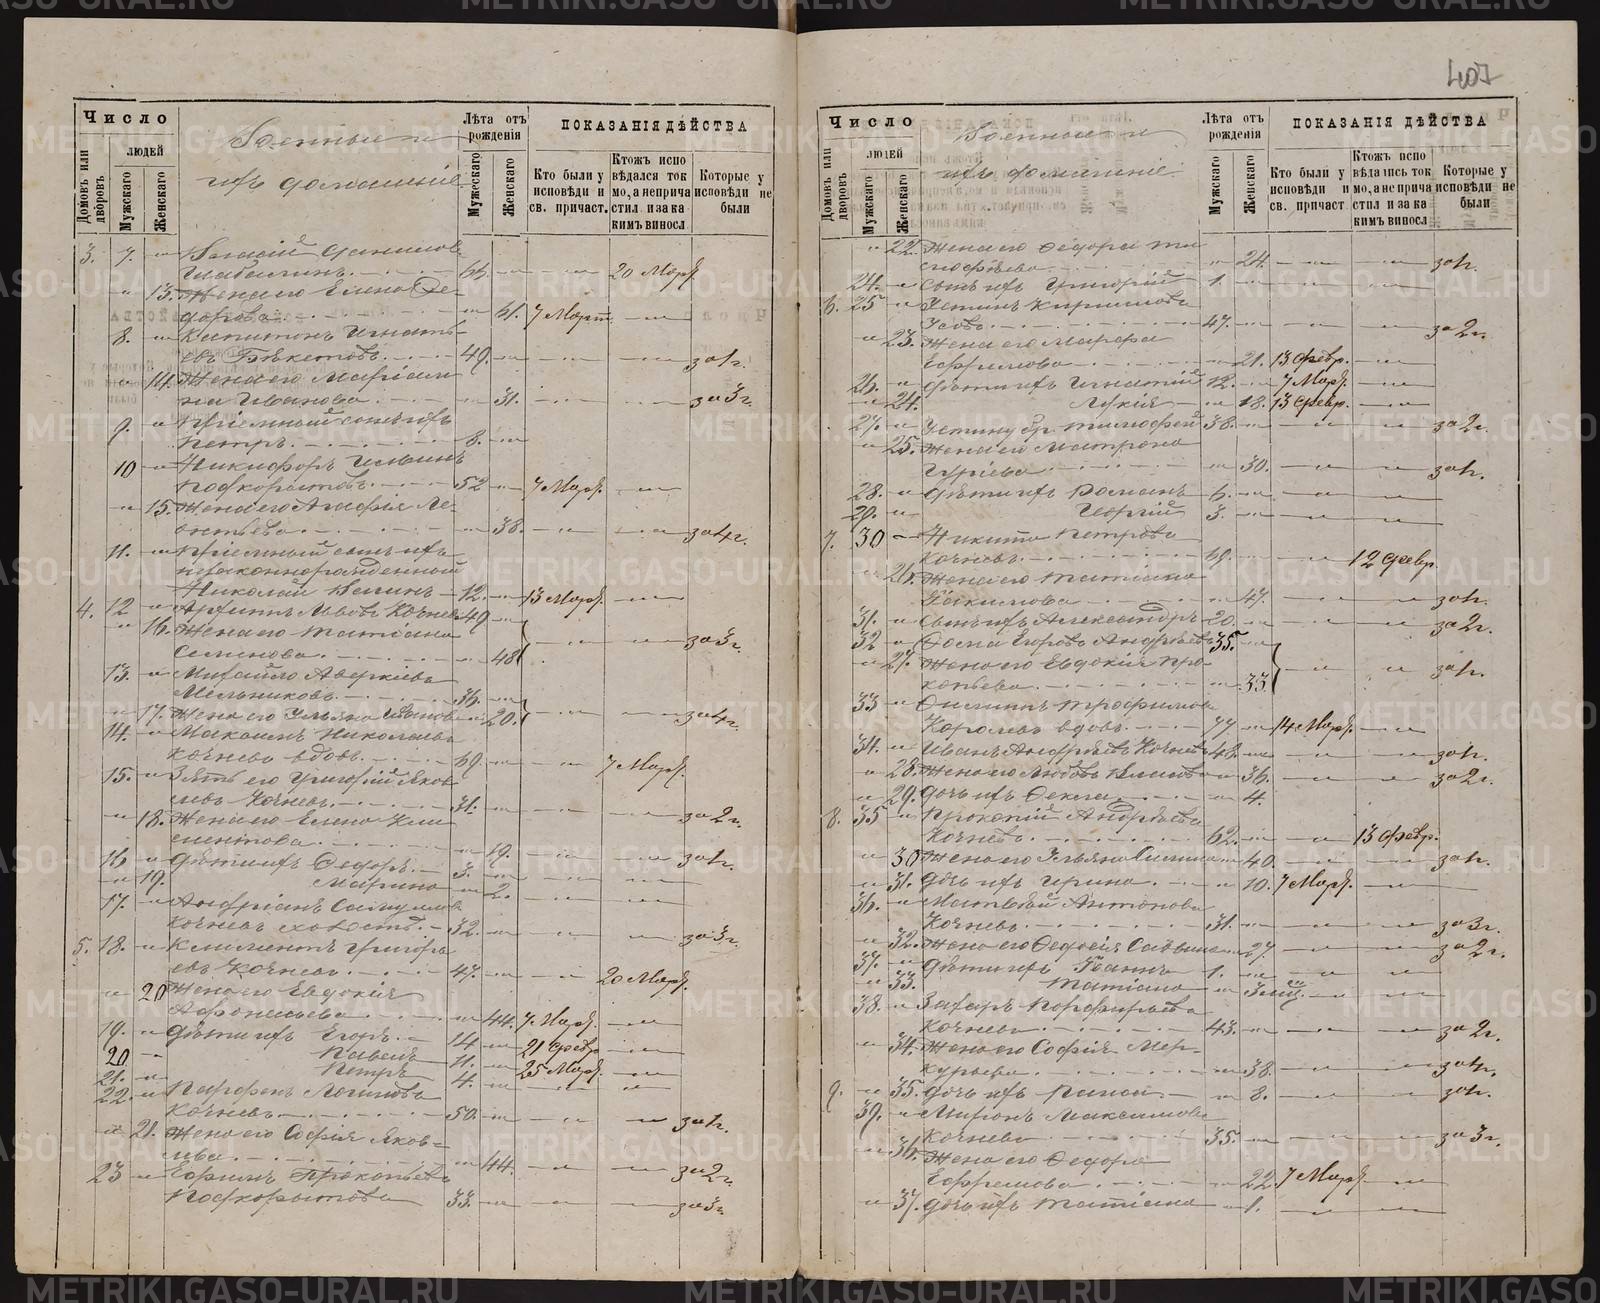 Число
Домовъ или дворовъ
людей
Мужскаго
Женскаго
Военные и
ихъ домашніе
Лѣта отъ рожденія
Мужескаго
Женскаго
ПОКАЗАНІЯ ДѢЙСТВА
Кто были у исповѣди и св. причаст.
Ктожъ исповѣдался токмо, а не причастил и за каким винослов
Которые у исповѣди не были
3. 7. Данилов
66. 20 Март.
13. Жена его Елена Фе-
дорова 61. 7 Март.
8. Капитонъ Игнать-
евъ Бѣкетовъ 49. за 1 г.
14. Жена его Маріам-
на Иванова 31. за 3 г.
9. Пріемный сынъ ихъ
Петръ 8.
10 Никифоръ Ильинъ
Подкорытовъ 52 7 Март.
15. Жена его Агафія Ле-
онтьева 38. за 4 г.
11. Пріемный сынъ ихъ
незаконнорожденный
Николай 12. 13 Март.
4. 12 Львовъ Кочнев 49
16. Жена его Татіана
Семенова 48 за 3 г.
13. Михайло Аверкіевъ
Мельниковъ 36.
17. Жена его Ульяна 20. за 4 г.
14. Николаевъ
Кочневъ вдовъ 69. 7 Март.
15. Зять его Григорій Яков-
левъ Кочневъ 31.
18. Жена его Елена Кли-
ментова 19. за 1 г.
16 Дѣти ихъ Ѳедоръ 3.
19. Марина 2.
17. Андріанъ Самуилов
Кочневъ холост. 32. за 3 г.
5. 18. Климентъ Григорь-
евъ Кочневъ 47. 20 Март.
20 Жена его Евдокія
Афонасьева 44. 7 Март.
19. Дѣти ихъ Егоръ 14 21 февр.
20 Павелъ 11. 25 Март.
21. Петръ 4.
22. Парфенъ Логиновъ
Кочневъ 50. за 1 г.
21. Жена его Софія Яков-
лева 44. за 2 г.
23 Ефимъ Прокопьевъ
Подкорытовъ 33. за 3 г.
407
Число
Домовъ или дворовъ
людей
Мужскаго
Женскаго
Военные и
ихъ домашніе
Лѣта отъ рожденія
Мужскаго
Женскаго
ПОКАЗАНІЯ ДѢЙСТВА
Кто были у исповѣди и св. причаст
Ктожъ исповѣдались токмо, а не причастил и за каким винослов
Которые у исповѣди не были
22. Жена его Ѳедора Ти-
мофѣева 24. за 1 г.
24. Сынъ ихъ Григорій 1.
6. 25 Устинъ Кирилловъ
Усовъ 47. за 2 г.
23. Жена его Марфа
Ефримова 21. 13 февр.
26. Дѣти ихъ Игнатій 12. 7 Март.
24. Лукія 18. 13 февр.
27. Устину бр. Тимофей 38. за 2 г.
25. Жена его Матрона
Гуріева 30. за 1 г.
28. Дѣти ихъ Романъ 6.
29. Георгій 3.
7. 30 Никита Петровъ
Кочневъ 69. 12 февр.
26. Жена его Татіана
Іакимова 47. за 1 г.
31. Сынъ ихъ Александръ 20. за 2 г.
32 Ѳома Егоровъ Андреевъ 35.
27. Жена его Евдокія Про-
копьева 33 за 1 г.
33 Трофимовъ
Королевъ вдовъ 77 14 Март.
34. Иванъ Андреевъ Кочневъ 48. за 1 г.
28. Жена его Любовь 36. за 2 г.
29. Дочь ихъ Ѳекла 4.
8. 35 Прокопій Андреевъ
Кочневъ 62. 13 февр.
30 Жена его Ульяна 40. за 1 г.
31. Дочь ихъ Ирина 10. 7 Март.
36. Матвѣй Антоновъ
Кочневъ 31. за 3 г.
32. Жена его Ѳедосія Саввина 27. за 2 г.
37. Дѣти ихъ Іоаннъ 1.
33. Татіана
38. Захаръ Порфирьевъ
Кочневъ 43. за 2 г.
34. Жена его Софія Мер-
курьева 38. за 4 г.
9. 35. Дочь ихъ 8. за 1 г.
39. Миронъ Максимовъ
Кочневъ 35. за 3 г.
36. Жена его Ѳедора
Ефремова 22. 7 Март.
37. Дочь ихъ Татіана 1.
METRIKI.GASO-URAL.RU